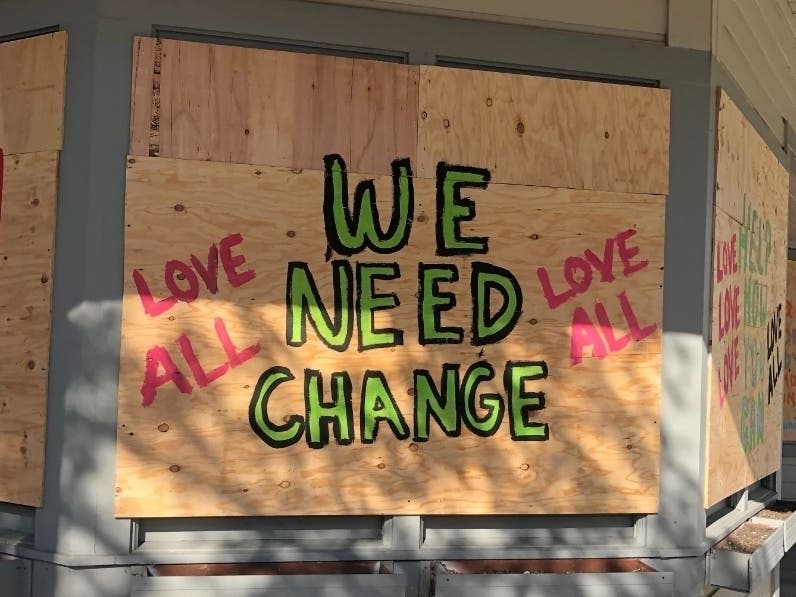 WE
NEED
CHANGE
LOVE
ALL
LOVE
ALL
LOVE
LOVE
LOVE
HELP
HOW
YOU
CAN
LOVE
ALL